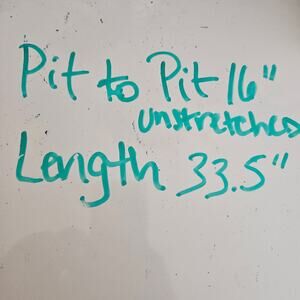 Pit to Pit 16"
unstretched
Length 33.5"